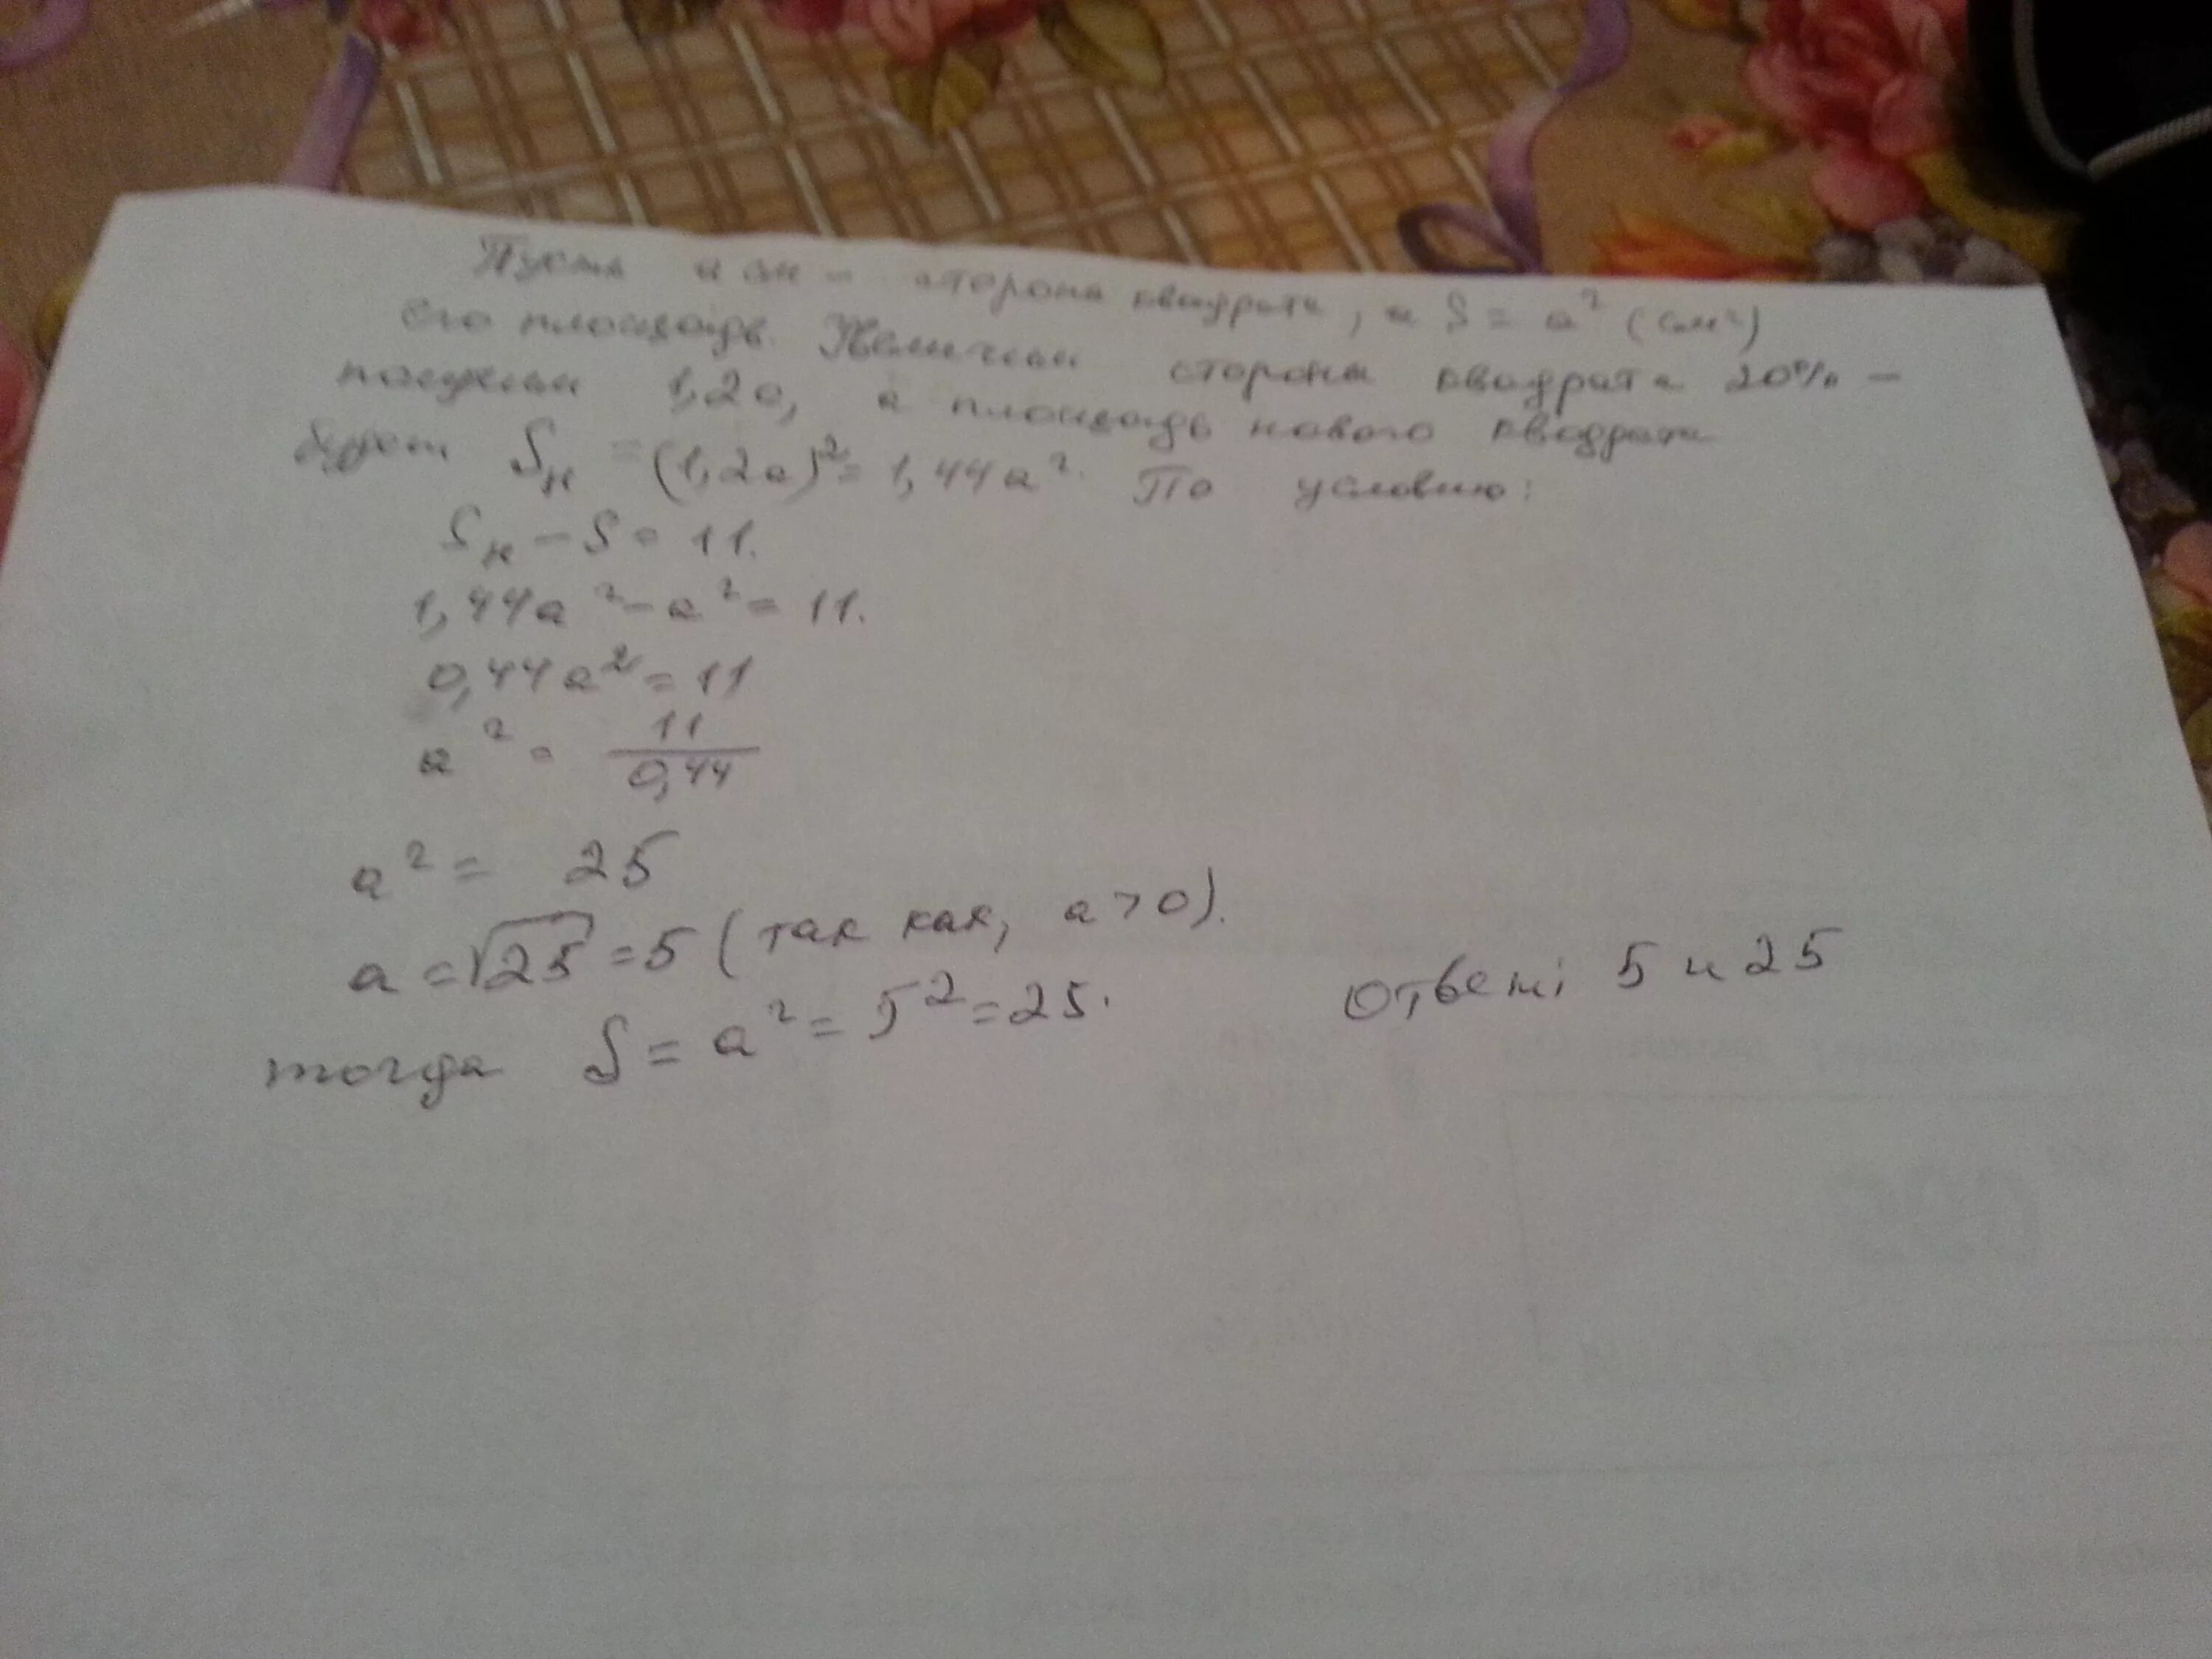 Пусть а см - сторона квадрата, а S = a² (см²)
его площадь. Увеличим стороны квадрата 20% -
получим 1,2а, а площадь нового квадрата
будет Sн = (1,2a)² = 1,44a². По условию:
Sн - S = 11.
1,44a² - a² = 11.
0,44a² = 11
a² = 11/0,44
a² = 25
a = √25 = 5 (так как, a > 0).
тогда S = a² = 5² = 25.
Ответ: 5 и 25